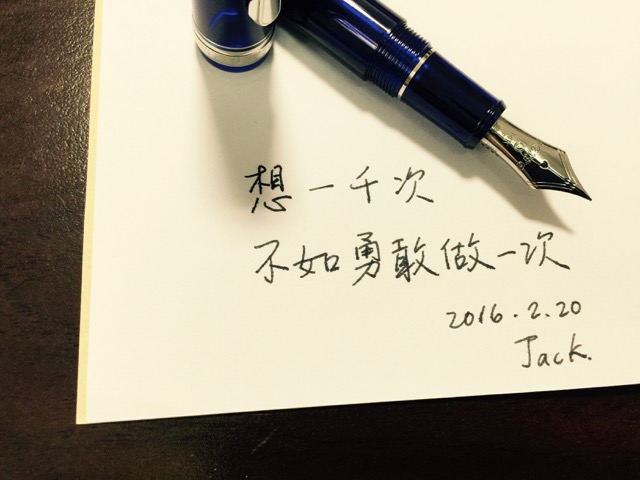 想一千次
不如勇敢做一次
2016.2.20
Jack.